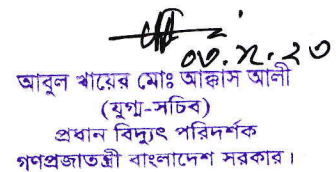 ০৩.২.২৩
আবুল খায়ের মোঃ আক্কাস আলী
(যুগ্ম-সচিব)
প্রধান বিদ্যুৎ পরিদর্শক
গণপ্রজাতন্ত্রী বাংলাদেশ সরকার।